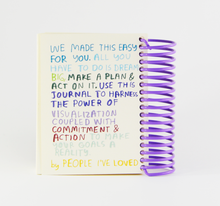 WE MADE THIS EASY
FOR YOU. ALL YOU
HAVE TO DO IS DREAM
BIG, MAKE A PLAN &
ACT ON IT. USE THIS
JOURNAL TO HARNESS
THE POWER OF
VISUALIZATION
COUPLED WITH
COMMITMENT &
ACTION TO MAKE
YOUR GOALS A
REALITY
by PEOPLE I'VE LOVED